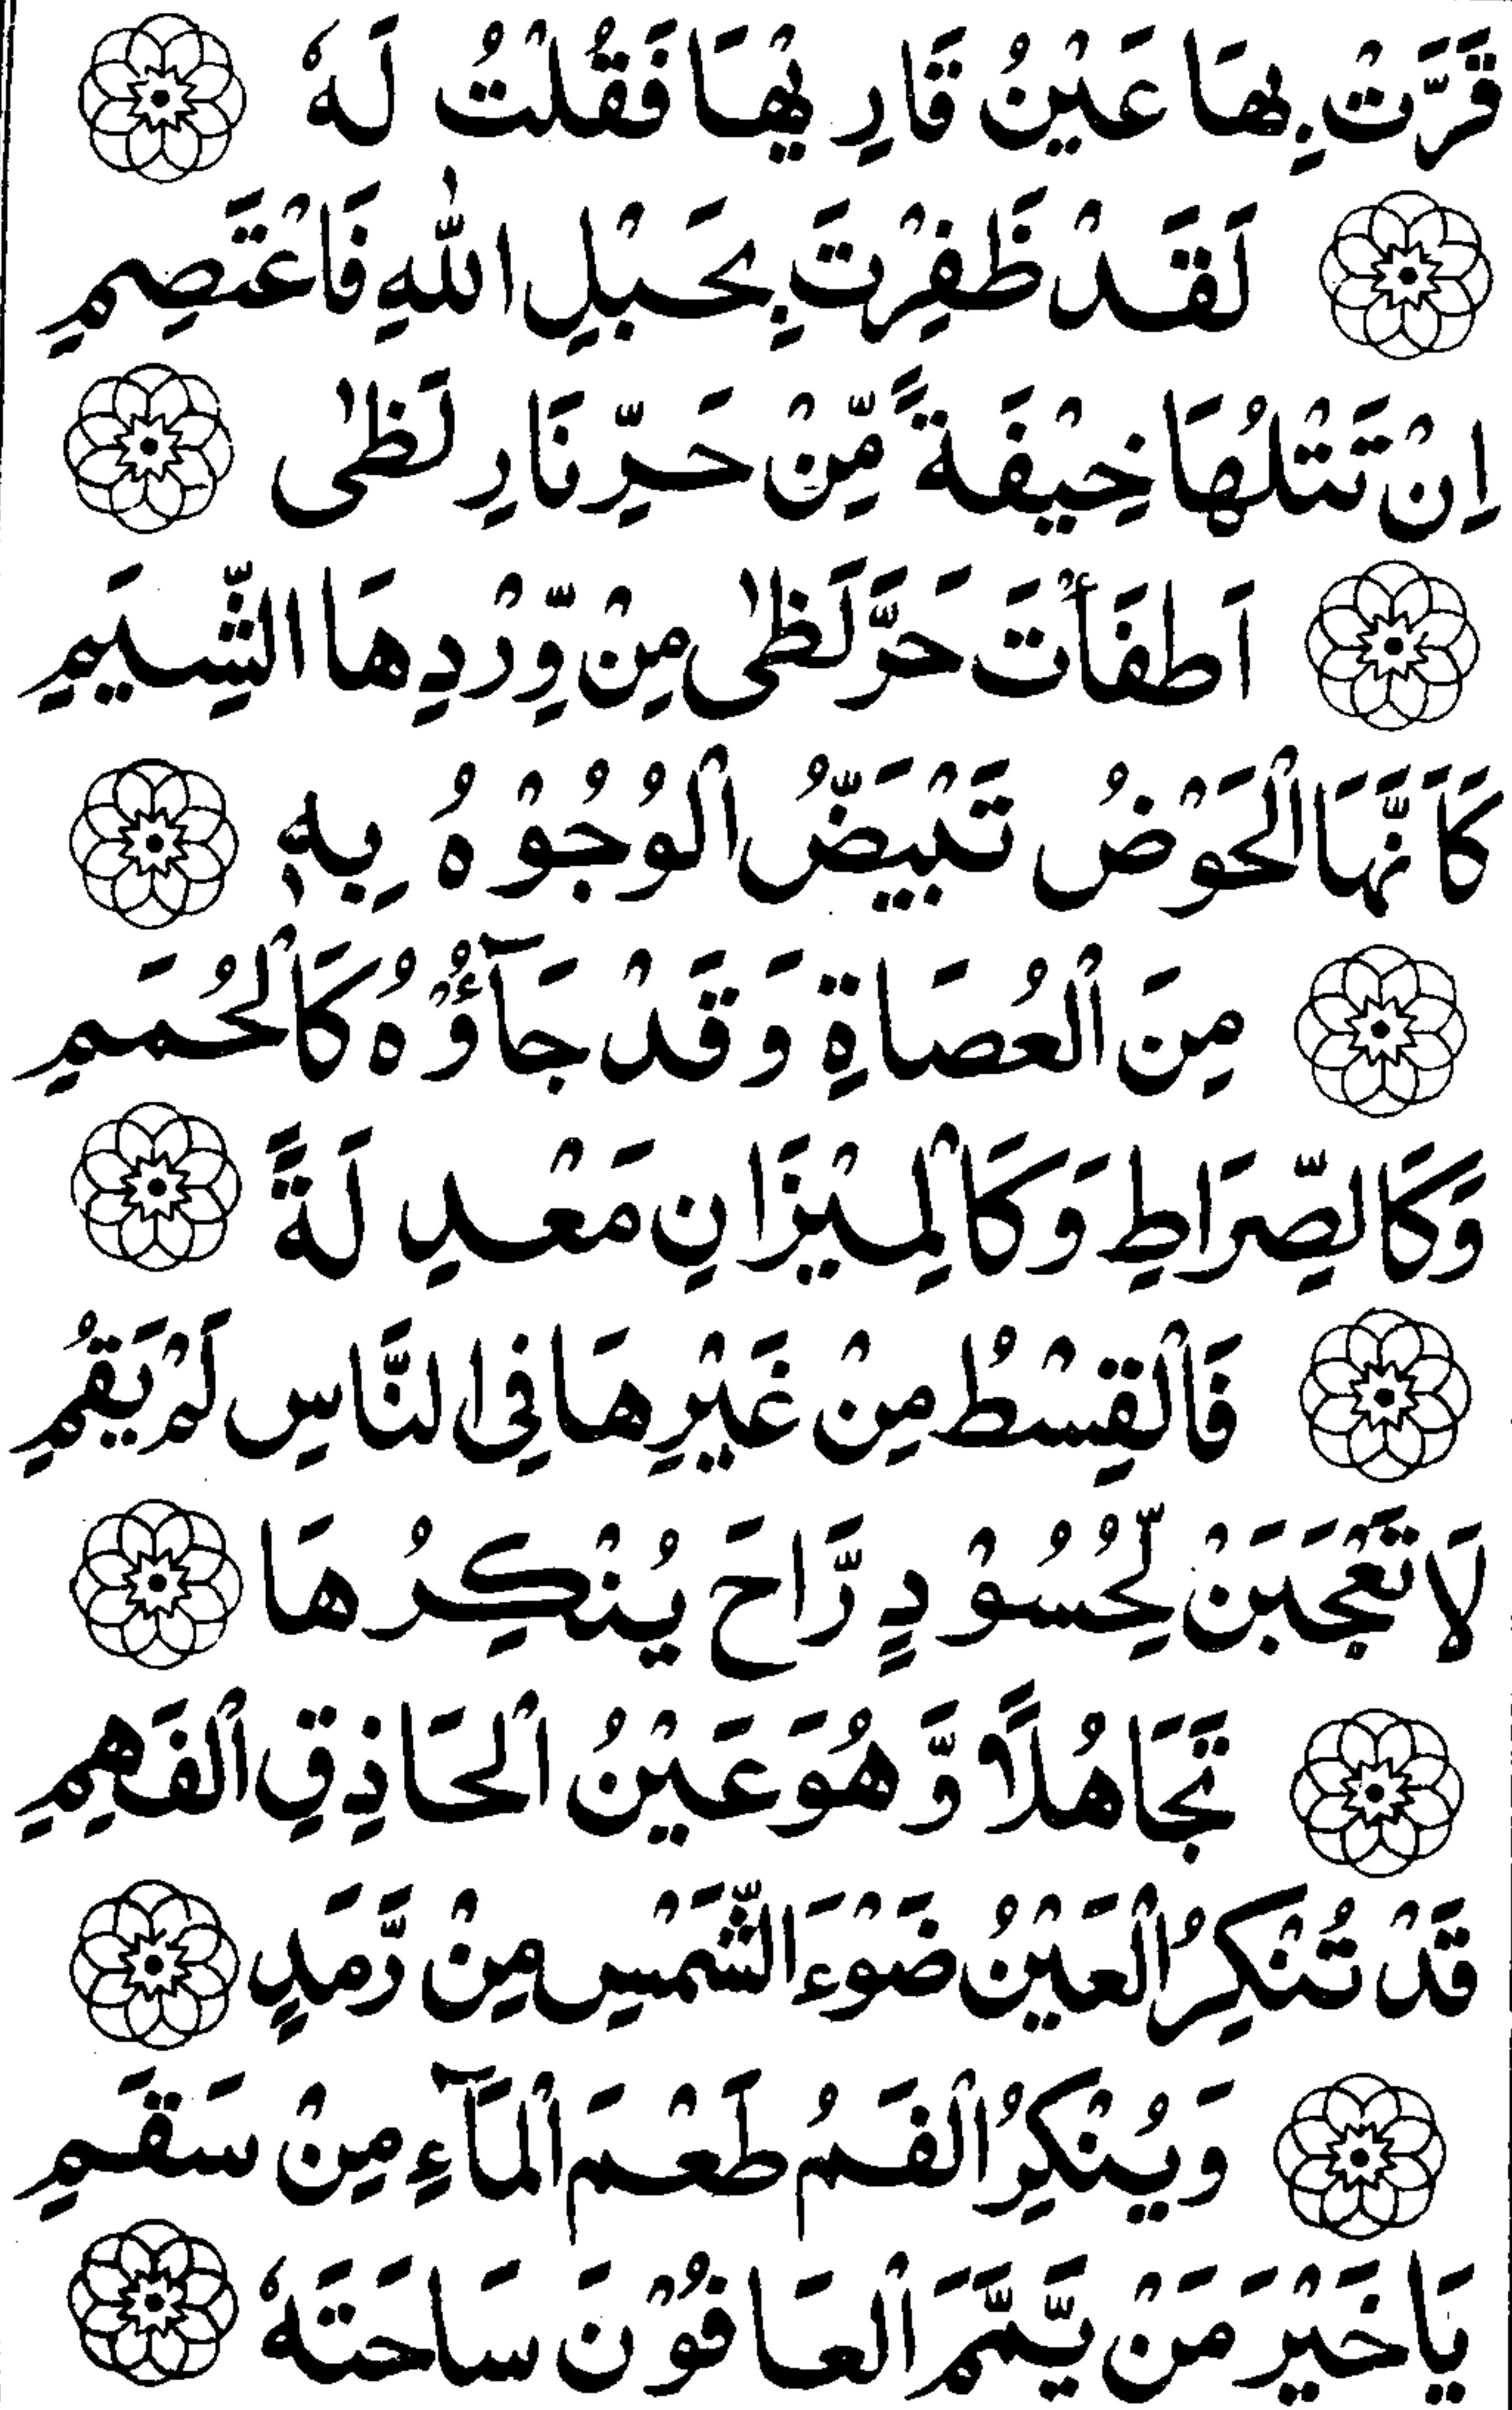 قَرَّتْ بِهَا عَيْنُ قَارِيْهَا فَقُلْتُ لَهٗ
لَقَدْ ظَفِرْتَ بِحَبْلِ اللّٰهِ فَاعْتَصِمِ
اِنْ تَتْلُهَا خِيْفَةً مِّنْ حَرِّ نَارِ لَظٰى
اَطْفَأْتَ حَرَّ لَظٰى مِنْ وِّرْدِهَا الشَّيِمِ
كَاَنَّهَا الْحَوْضُ تَبْيَضُّ الْوُجُوْهُ بِهٖ
مِنَ الْعُصَاةِ وَقَدْ جَآءُوْهُ كَالْحُمَمِ
وَكَالصِّرَاطِ وَكَالْمِيْزَانِ مَعْدِلَةً
فَالْقِسْطُ مِنْ غَيْرِهَا فِى النَّاسِ لَمْ يَقُمِ
لَا تَعْجَبَنْ لِّحُسُوْدٍ رَّاحَ يُنْكِرُهَا
تَجَاهُلًا وَّهُوَ عَيْنُ الْحَاذِقِ الْفَهِمِ
قَدْ تُنْكِرُ الْعَيْنُ ضَوْءَ الشَّمْسِ مِنْ رَّمَدٍ
وَيُنْكِرُ الْفَمُ طَعْمَ الْمَآءِ مِنْ سَقَمِ
يَا خَيْرَ مَنْ يَّمَّمَ الْعَافُوْنَ سَاحَتَهٗ